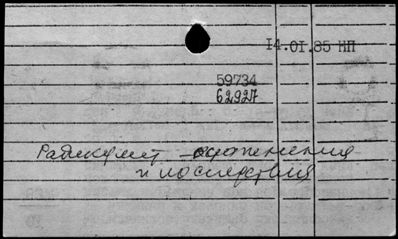 14.01.85 НП
59734
62927
Радикулит - осложнения
и последствия